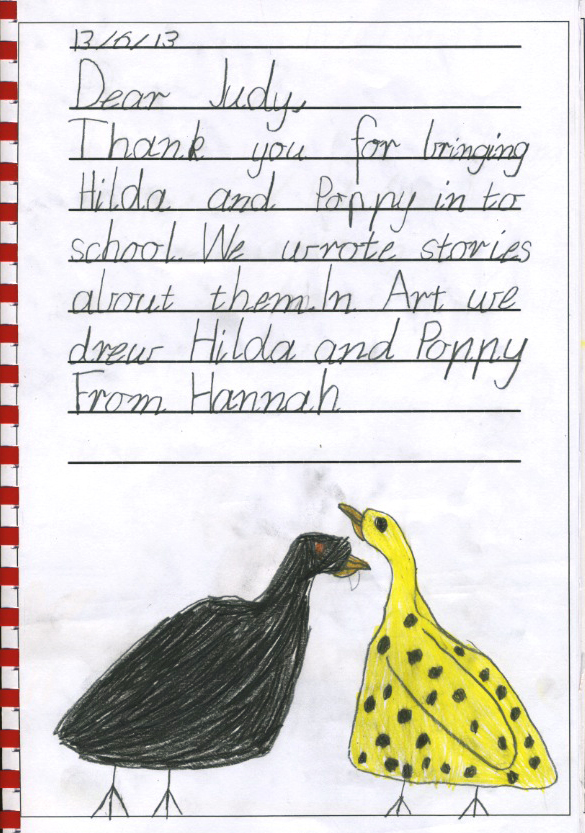 13/6/13
Dear Judy,
Thank you for bringing
Hilda and Poppy in to
school. We wrote stories
about them. In Art we
drew Hilda and Poppy
From Hannah